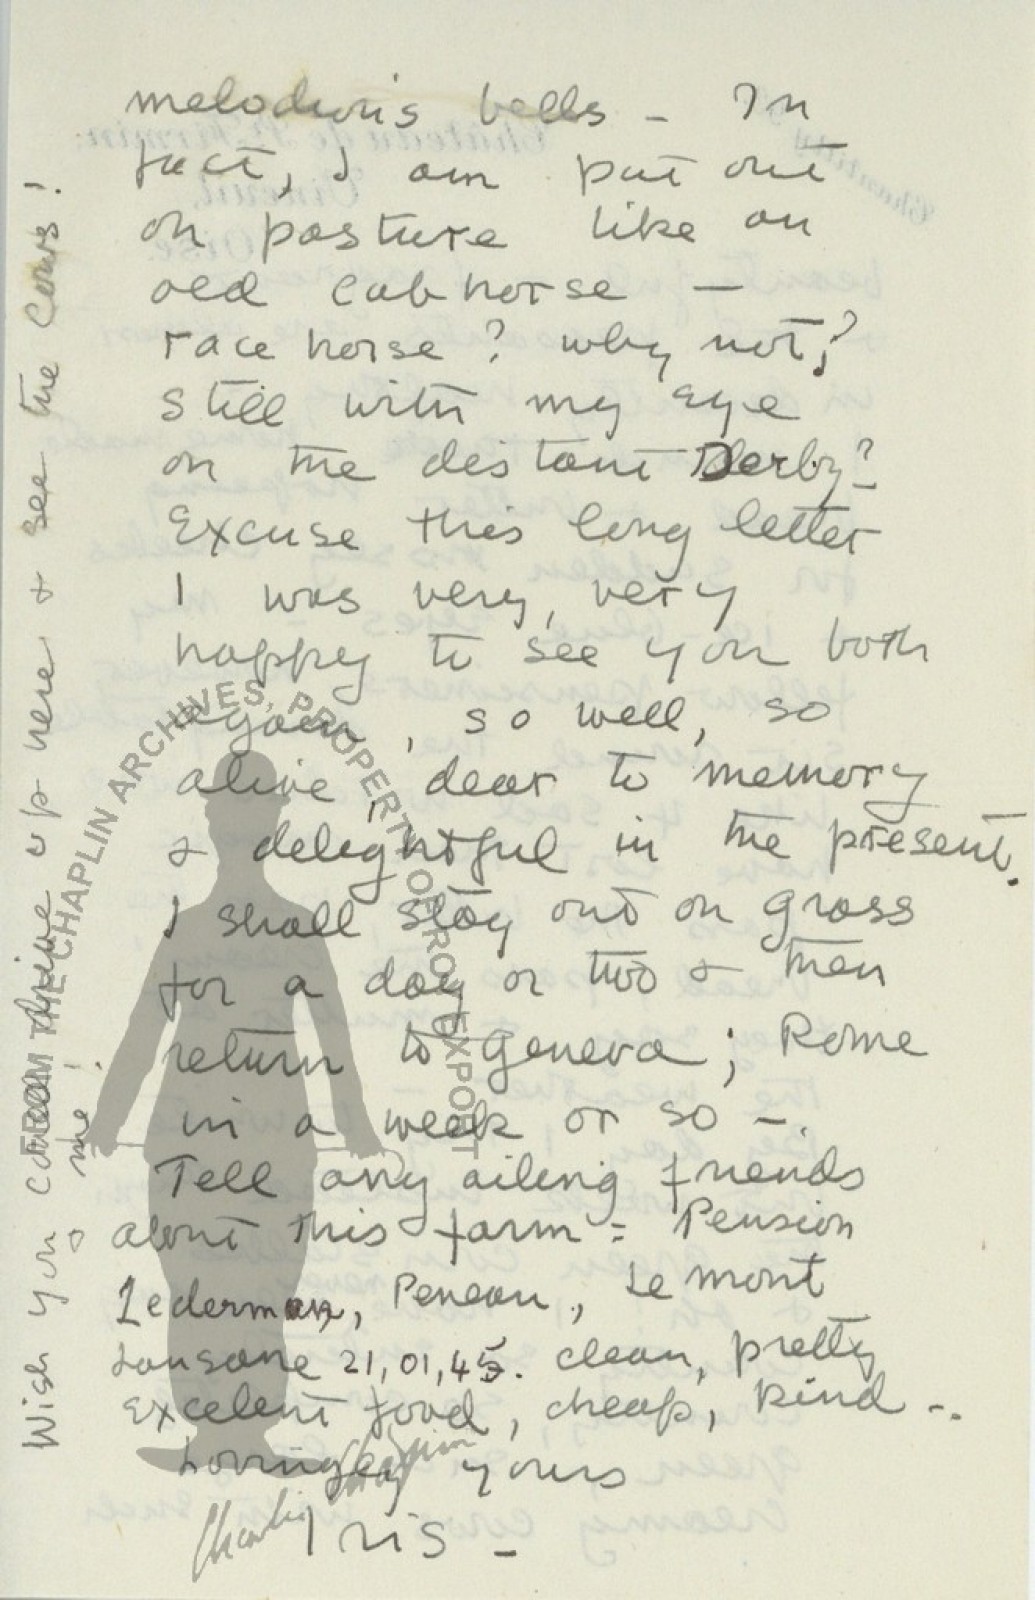 melodious bells - In
fact, I am put out
on pasture like an
old cab horse -
race horse? why not?
Still with my eye
on the distant Derby?
Excuse this long letter
I was very, very
happy to see you both
again, so well, so
alive, dear to memory
& delightful in the present.
I shall stay out on grass
for a day or two & then
return to Geneva; Rome
in a week or so -.
Tell any ailing friends
about this farm = Pension
Lederman, Peneau, Le mont
Lousane 21,01,45. clean, pretty
Excelent food, cheap, kind -.
Lovingly yours
Iris -
Wish you could drive up here & see the cows!
& me!
FROM THE CHAPLIN ARCHIVES, PROPERTY OF ROY EXPORT
Charlie Chaplin